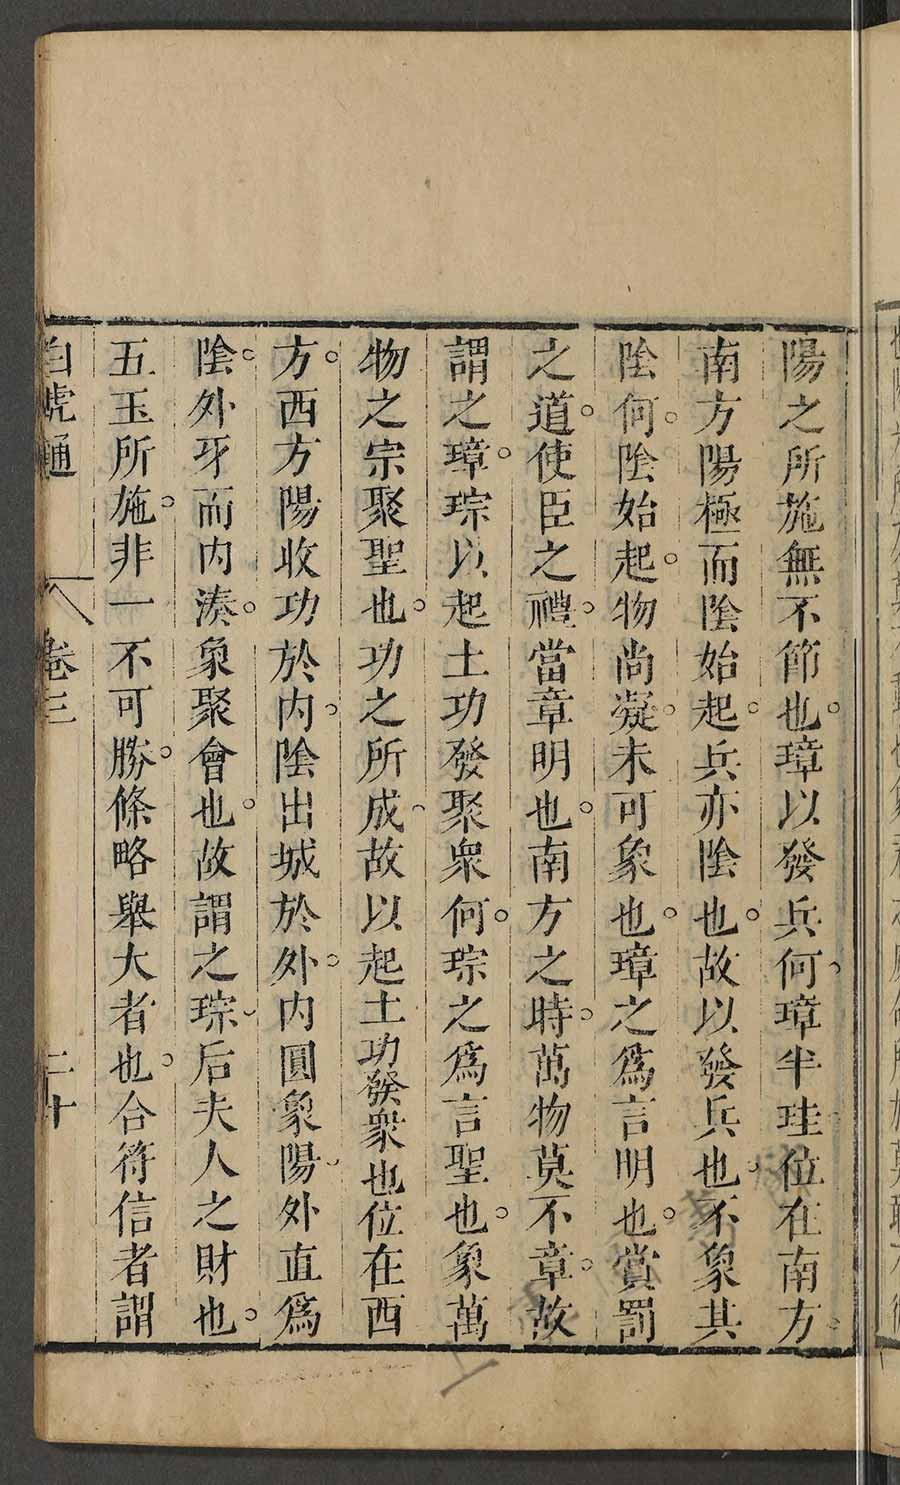 陽之所施無不節也璋以發兵何璋半珪位在南方
南方陽極而陰始起兵亦陰也故以發兵也不象其
陰何陰始起物尚凝未可象也璋之爲言明也賞罰
之道使臣之禮當章明也南方之時萬物莫不章故
謂之璋琮以起土功發聚衆何琮之爲言聖也象萬
物之宗聚聖也功之所成故以起土功發衆也位在西
方西方陽收功於内陰出城於外内圓象陽外直爲
陰外牙而内湊象聚會也故謂之琮后夫人之財也
五玉所施非一不可勝條略舉大者也合符信者謂
白虎通 卷三 二十